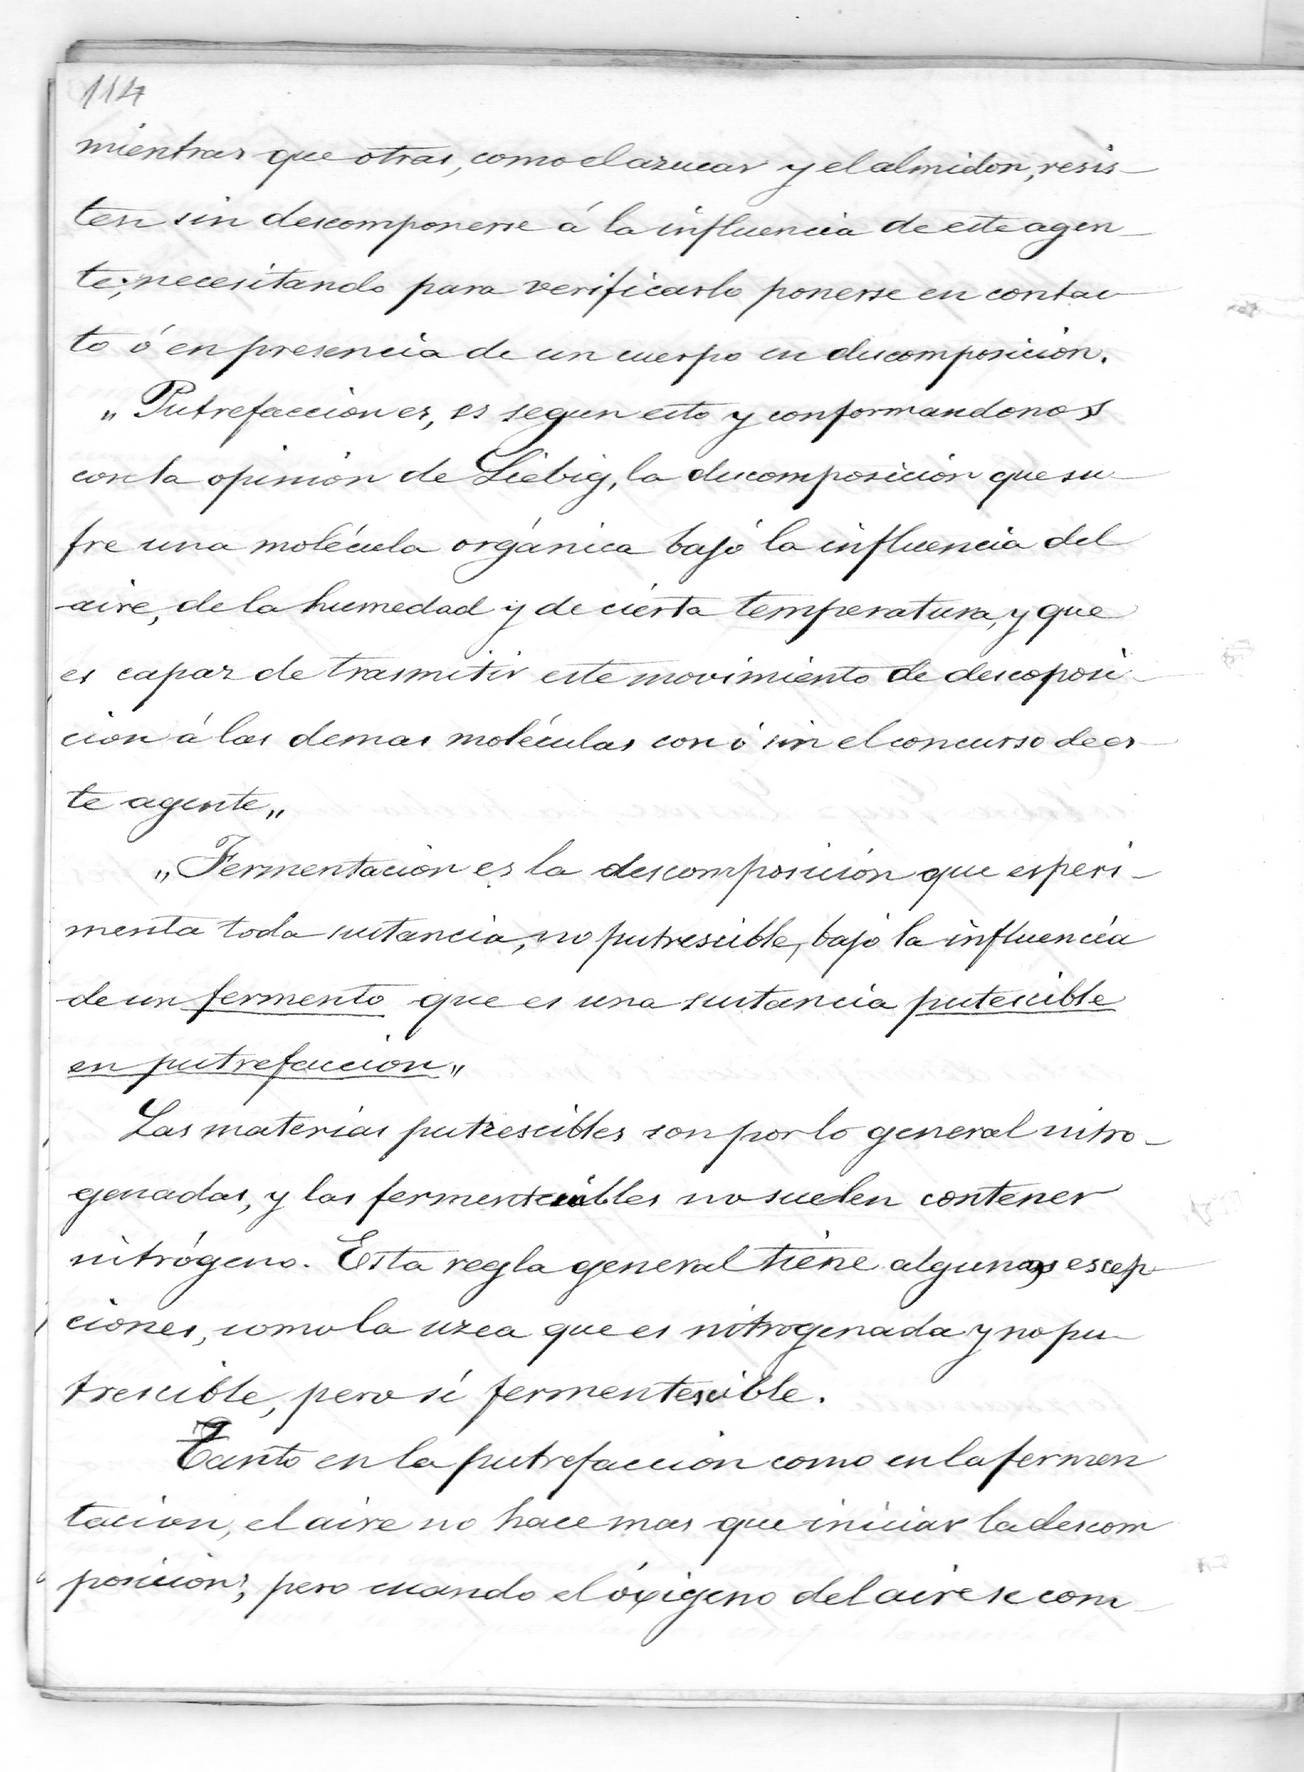 114
mientras que otras, como el azucar y el almidon, resis-
ten sin descomponerse á la influencia de este agen-
te; necesitando para verificarlo ponerse en contac-
to ó en presencia de un cuerpo en descomposición.
„Putrefaccion es, es segun esto y conformandonos
con la opinión de Liebig, la descomposición que su-
fre una molécula orgánica bajo la influencia del
aire, de la humedad y de cierta temperatura, y que
es capaz de trasmitir este movimiento de descoposi-
cion á las demas moléculas con ó sin el concurso de es-
te agente„
„Fermentacion es la descomposición que esperi-
menta toda sutancia, no putrescible, bajo la influencia
de un fermento que es una sustancia putescible
en putrefaccion„
Las materias putrescibles son por lo general nitro-
genadas, y las fermentecibles no suelen contener
nitrógeno. Esta regla general tiene algunas escep-
ciones, como la urea que es nitrogenada y no pu-
trescible, pero sí fermentescible.
Tanto en la putrefaccion como en la fermen
tacion, el aire no hace mas que iniciar la descom
posicion; pero cuando el óxigeno del aire se com-